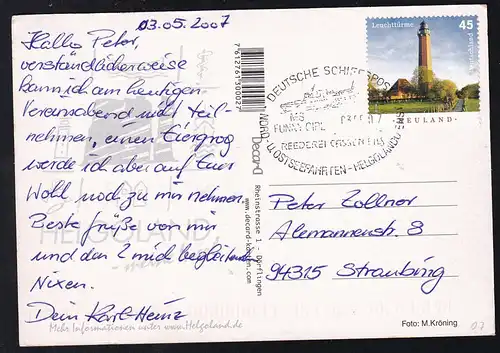 03.05.2007
Hallo Peter,
verständlicherweise
kann ich am heutigen
Vereinsabend nicht teil-
nehmen, einen Eiergrog
werde ich aber auf Euer
Wohl noch zu mir nehmen.
Beste Grüße von mir
und den 2 mich begleitenden
Nixen.
Dein Karl-Heinz
HELGOLAND
Mehr Informationen unter www.Helgoland.de
7612761300027
Decard
Rheinstrasse 1 - Dörflingen
www.decard-karten.com
Leuchttürme 45
Deutschland
NEULAND
DEUTSCHE SCHIFFSPOST
MS
FUNNY GIRL
REEDEREI CASSEN EILS
NORD- OSTSEEFAHRTEN - HELGOLAND
Peter Zollner
Alemannenstr. 8
94315 Straubing
Foto: M.Kröning
07